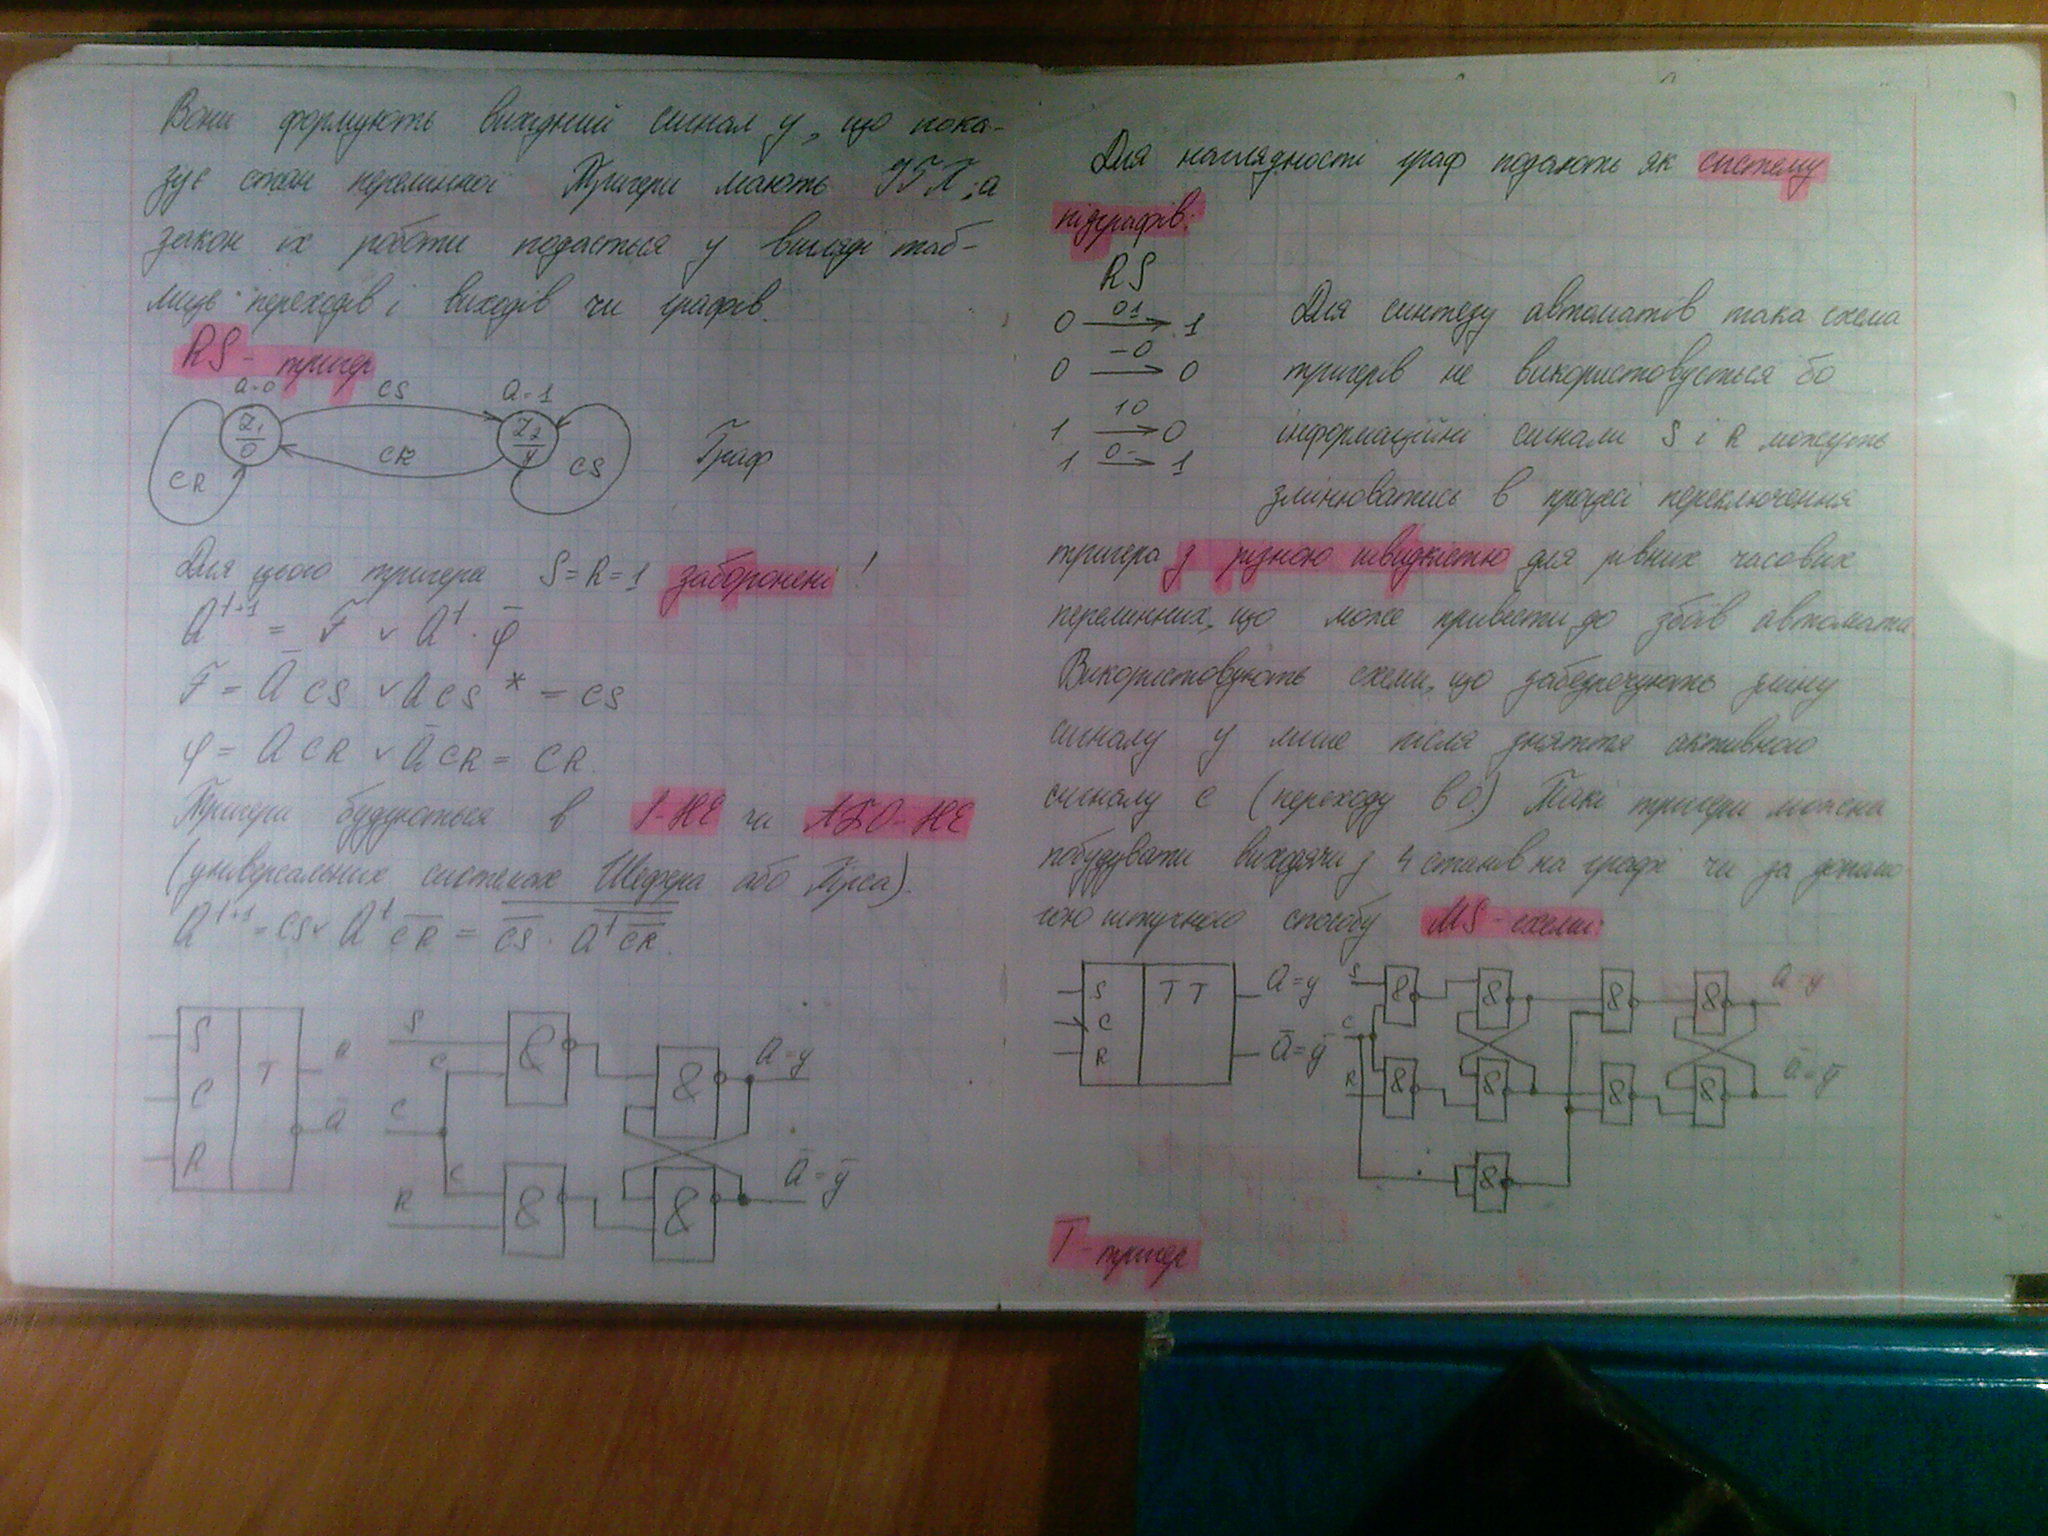 Вони формують вихідний сигнал y, що пока-
зує стан перемінної Тригери мають ; а
закон їх роботи подається у вигляді таб-
лиць переходів і виходів чи графів.
RS - тригер
a=0 CS a=1
Z1/0 CR Z2/y CS Граф
CR
Для цього тригера S=R=1 заборонені!
A^t+1 = F ∨ A^t · φ̄
F = Ā CS ∨ A CS * = CS
φ = A CR ∨ Ā CR = CR.
Тригери будуються в І-НЕ чи АБО-НЕ
(універсальних системах Шефера або Пірса).
S C R T a ā
S C C C R & & & & A=y Ā=ȳ
Для наглядності граф подають як систему
підграфів:
RS
0 01→ 1
0 -0→ 0
1 10→ 0
1 0-→ 1
Для синтезу автоматів така схема
тригерів не використовується бо
інформаційні сигнали S і R можуть
змінюватись в процесі переключення
тригера з різною швидкістю для рівних часових
перемінних, що може привести до збоїв автомата
Використовують схеми, що забезпечують зміну
сигналу y лише після зняття активного
сигналу C (переходу в 0.) Такі тригери можна
побудувати виходячи з 4 станів на графі чи за допомо
гою штучного способу MS-схеми:
S C R T T A=y Ā=ȳ
S C R & & & & & & & & & A=y Ā=ȳ
T - тригер